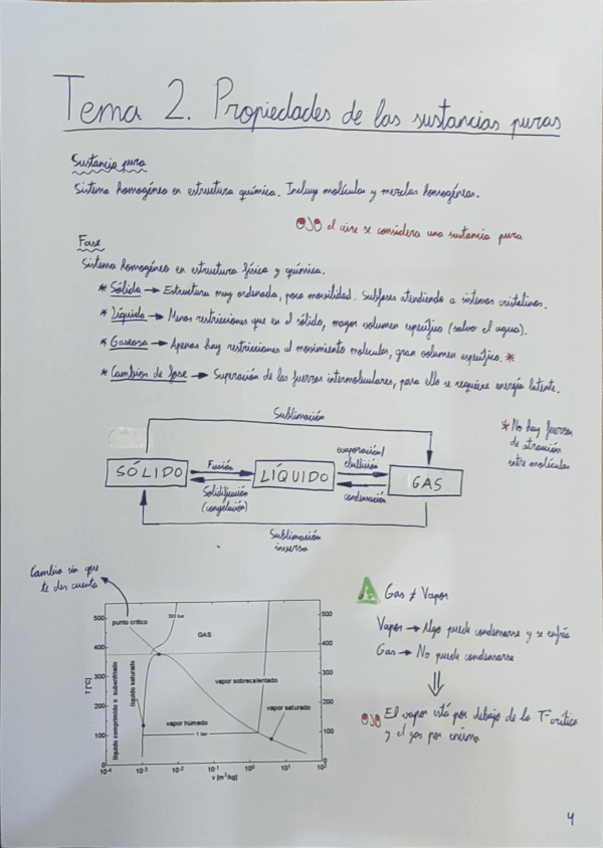 Tema 2. Propiedades de las sustancias puras
Sustancia pura
Sistema homogéneo en estructura química. Incluye moléculas y mezclas homogéneas.
OJO el aire se considera una sustancia pura
Fase
Sistema homogéneo en estructura física y química.
* Sólida → Estructura muy ordenada, poca movilidad. Subfases atendiendo a sistemas cristalinos.
* Líquida → Menos restricciones que en el sólido, mayor volumen específico (salvo el agua).
* Gaseosa → Apenas hay restricciones al movimiento molecular, gran volumen específico. *
* Cambios de fase → Superación de las fuerzas intermoleculares, para ello se requiere energía latente.
* No hay fuerzas
de atracción
entre moléculas
Sublimación
SÓLIDO
Fusión
Solidificación
(congelación)
LÍQUIDO
evaporación/
ebullición
condensación
GAS
Sublimación
inversa
Cambia sin que
te des cuenta
punto crítico
350 bar
GAS
líquido comprimido o subenfriado
líquido saturado
vapor sobrecalentado
vapor húmedo
vapor saturado
1 bar
T [°C]
500
400
300
200
100
0
500
400
300
200
100
0
10-4
10-3
10-2
10-1
100
101
102
v [m3/kg]
Gas ≠ Vapor
Vapor → Algo puede condensarse y se enfría
Gas → No puede condensarse
OJO El vapor está por debajo de la Tª crítica
y el gas por encima
4